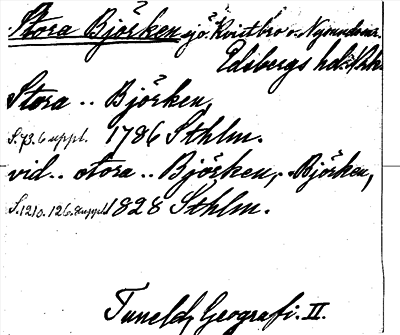 Stora Björken sjö. Kvistbro o. Nysunds snr.
Edsbergs hd.
Stora .. Björken,
S. 73. 6 uppl. 1786 Sthlm.
vid .. stora .. Björken, .. Björken,
S. 1210. 126. 8 uppl. 1828 Sthlm.
Tuneld, Geografi. II.